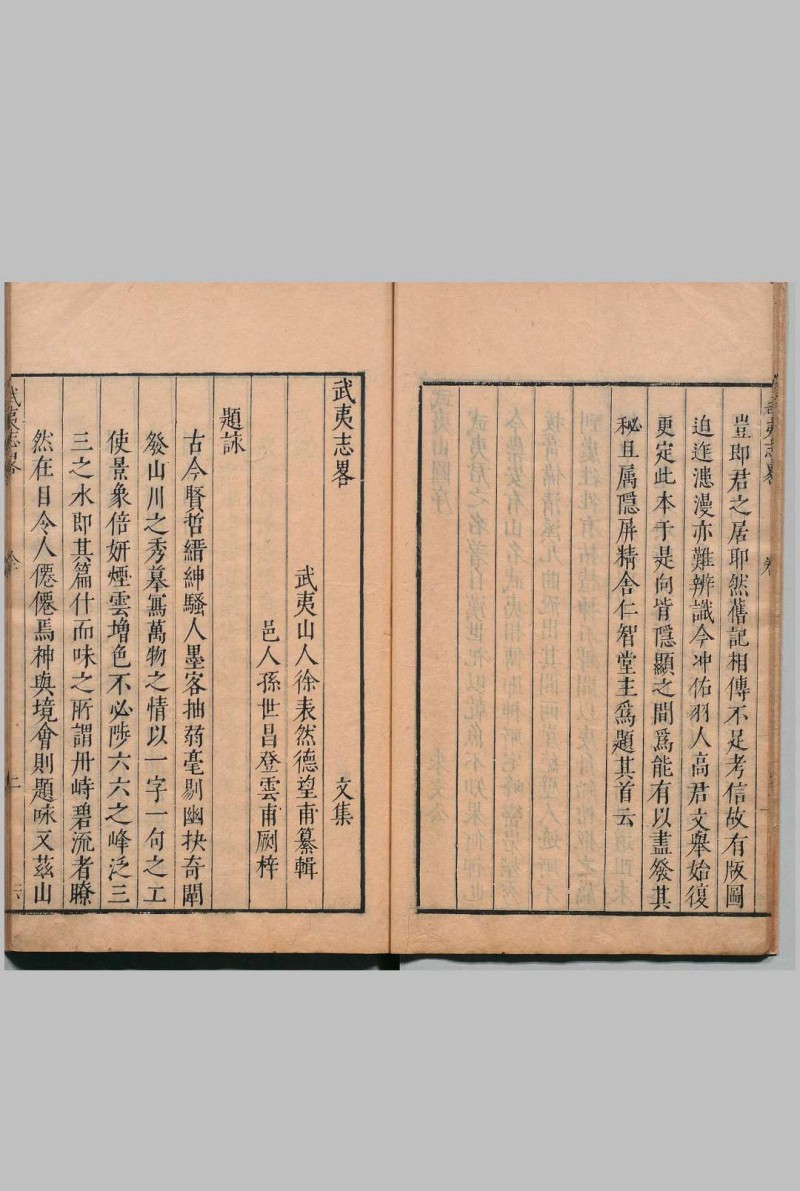 豈即君之居耶然舊記相傳不足考信故有版圖
迫迮漶漫亦難辨識今冲佑羽人高君文舉始復
更定此本于是向背隱顯之間爲能有以盡發其
秘且属隠屏精舎仁智堂主爲題其首云
武夷志畧 文集
武夷山人徐表然德望甫纂輯
邑人孫世昌登雲甫刷梓
題詠
古今賢哲縉紳騷人墨客抽豪剔幽抉奇闡
發山川之秀摹寫萬物之情以一字一句之工
使景象倍妍煙雲增色不必陟六六之峰泛三
三之水即其篇什而味之所謂丹峙碧流者瞭
然在目令人僊僊焉神與境會則題咏又茲山
武夷志畧